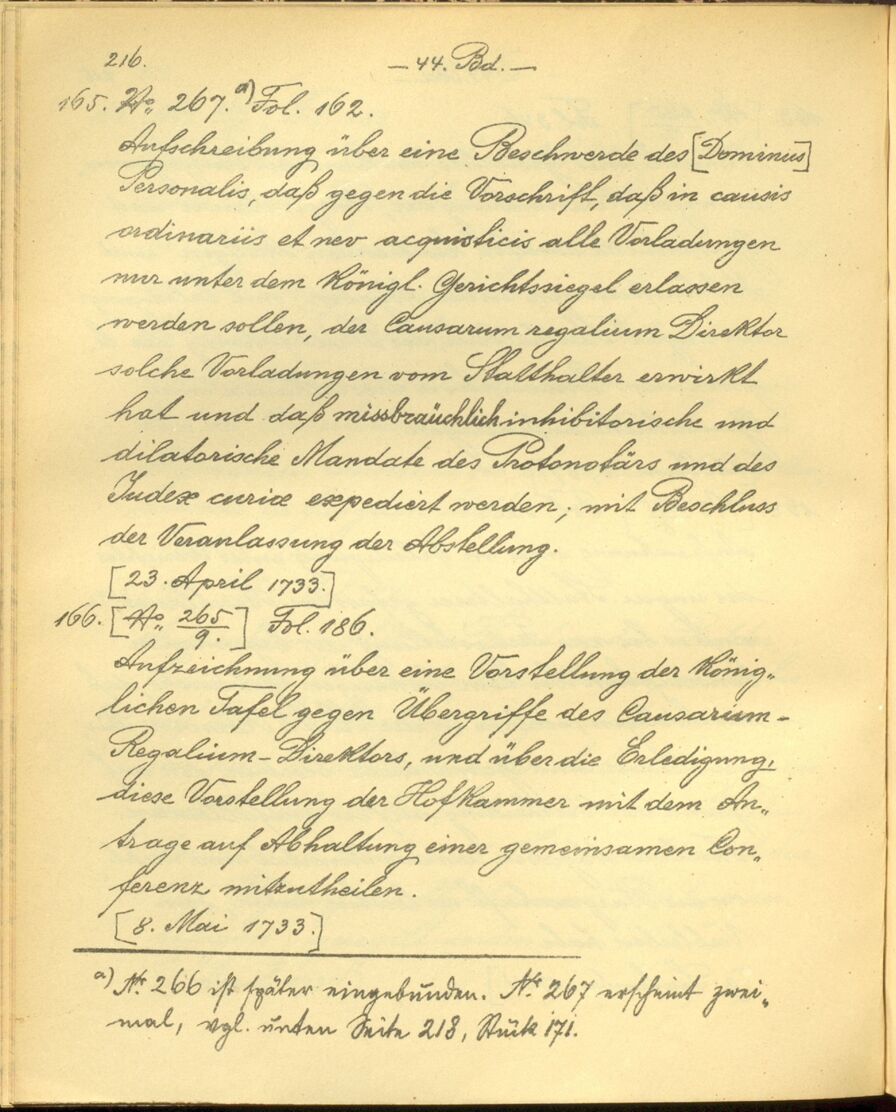 216. — 44. Bd. —
165. No. 267. a) Fol. 162.
Aufschreibung über eine Beschwerde des [Dominus]
Personalis, daß gegen die Vorschrift, daß in causis
ordinariis et nev acquisticis alle Vorladungen
nur unter dem Königl. Gerichtssiegel erlassen
werden sollen, der Causarum regalium Direktor
solche Vorladungen vom Statthalter erwirkt
hat und daß missbräuchlich inhibitorische und
dilatorische Mandate des Protonotärs und des
Judex curiæ expediert werden; mit Beschluss
der Veranlassung der Abstellung.
[23. April 1733.]
166. [No. 265/9.] Fol. 186.
Aufzeichnung über eine Vorstellung der König„
lichen Tafel gegen Übergriffe des Causarum-
Regalium-Direktors, und über die Erledigung,
diese Vorstellung der Hofkammer mit dem An„
trage auf Abhaltung einer gemeinsamen Con„
ferenz mitzutheilen.
[8. Mai 1733.]
a) Nr. 266 ist später eingebunden. Nr. 267 erscheint zwei„
mal, vgl. unten Seite 218, Stück 171.